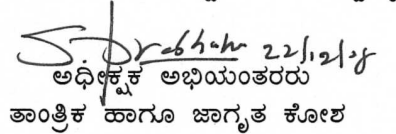 S. Prabhakar 22/12/28
ಅಧೀಕ್ಷಕ ಅಭಿಯಂತರರು
ತಾಂತ್ರಿಕ ಹಾಗೂ ಜಾಗೃತ ಕೋಶ